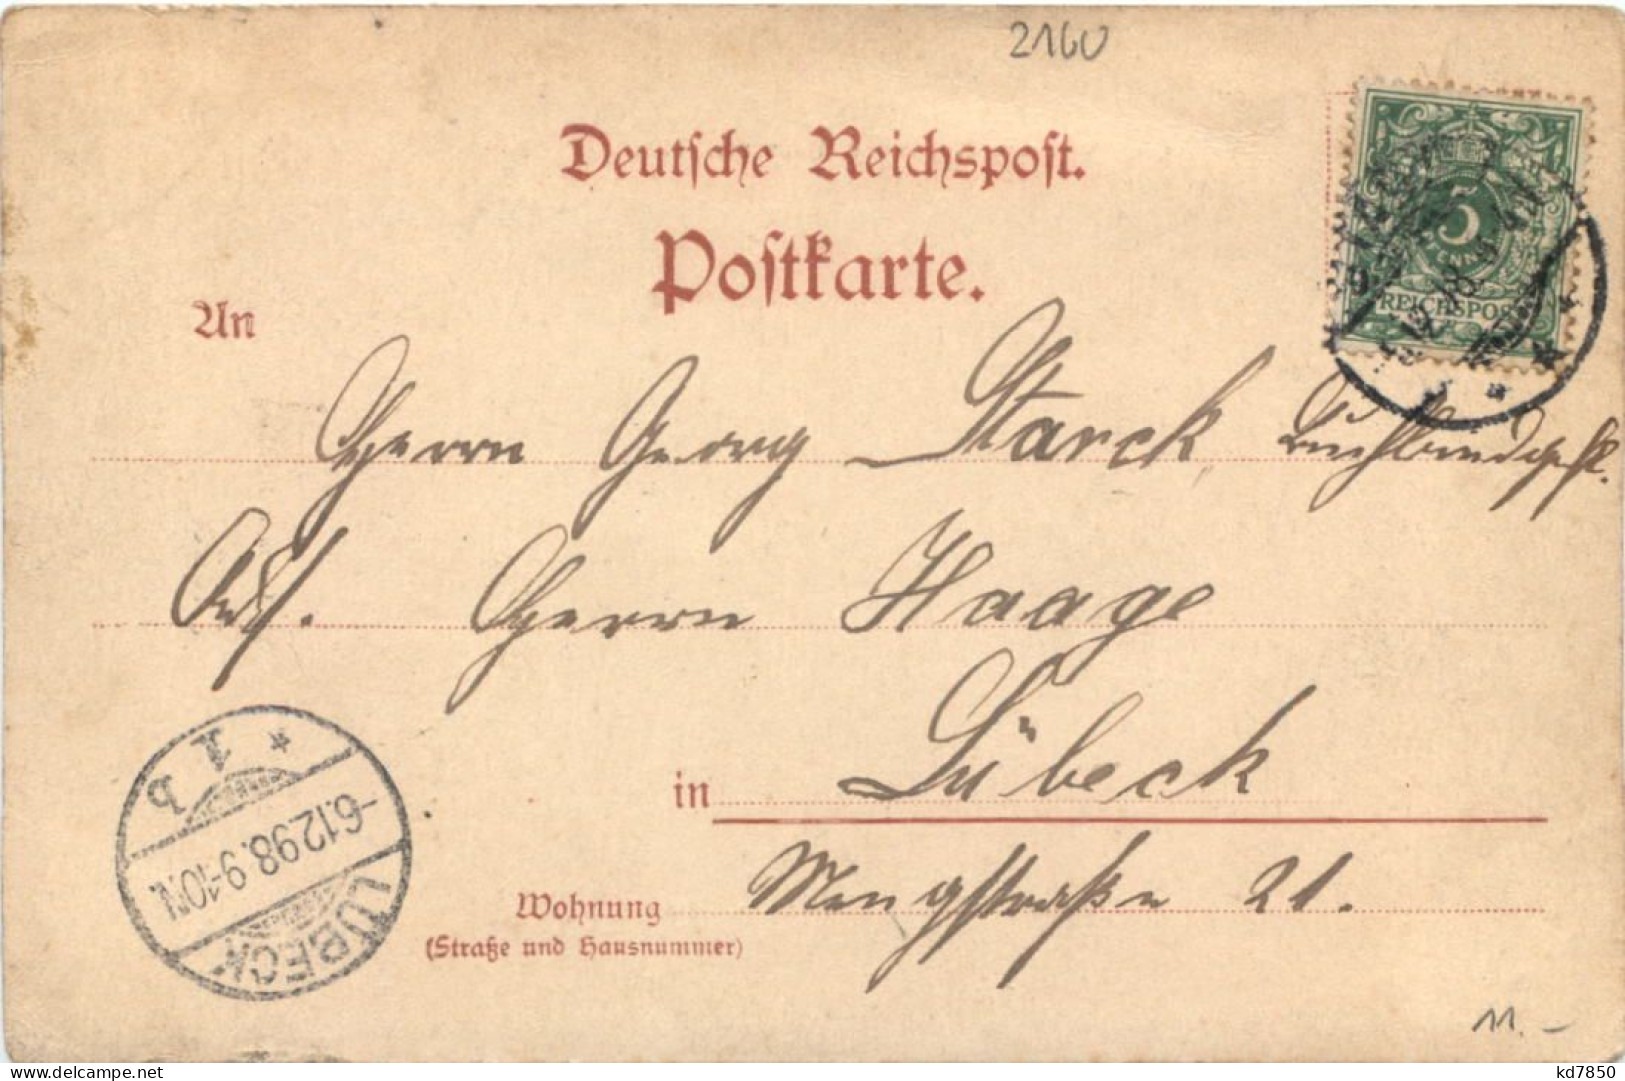 2160
Deutsche Reichspost.
Postkarte.
5
REICHSPOST
An
Herrn Georg Starck, Buchbindgeh.
Adr. Herrn Haage
in Lübeck
Wohnung Mengstraße 21.
(Straße und Hausnummer)
* 1 b
-6.12.98. 9-10N.
LÜBECK
11.-
kd7850